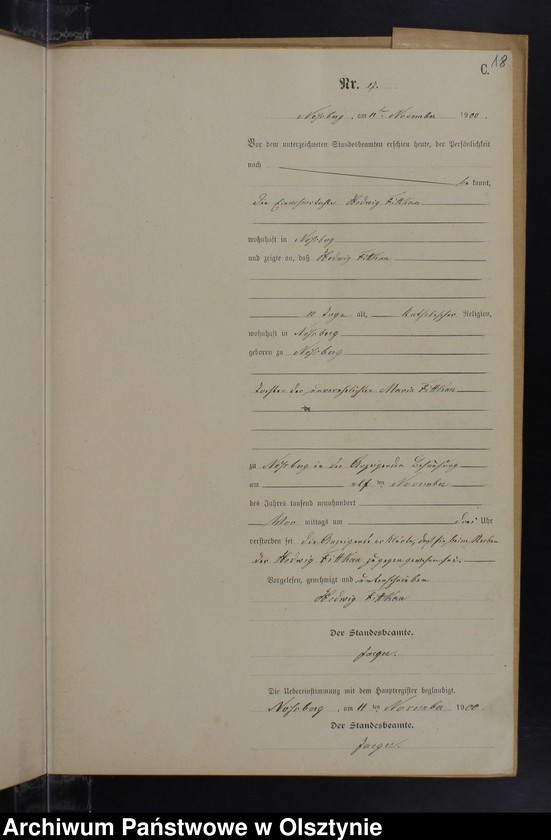 C. 18
Nr. 17.
Noßberg, am 11ten November 1900.
Vor dem unterzeichneten Standesbeamten erschien heute, der Persönlichkeit
nach
bekannt,
die Hedwig Fittkau
wohnhaft in Noßberg
und zeigte an, daß Hedwig Fittkau
11 Tage alt, katholischer Religion,
wohnhaft in Noßberg
geboren zu Noßberg
Tochter der unverehelichten Maria Fittkau
zu Noßberg in der Anzeigenden Behausung
am elften November
des Jahres tausend neunhundert
Vor mittags um drei Uhr
verstorben sei. Die Anzeigende erklärte, daß sie beim Sterben
der Hedwig Fittkau zugegen gewesen sei.
Vorgelesen, genehmigt und unterschrieben
Hedwig Fittkau
Der Standesbeamte.
Jaeger.
Die Uebereinstimmung mit dem Hauptregister beglaubigt.
Noßberg, am 11ten November 1900
Der Standesbeamte.
Jaeger.
Archiwum Państwowe w Olsztynie